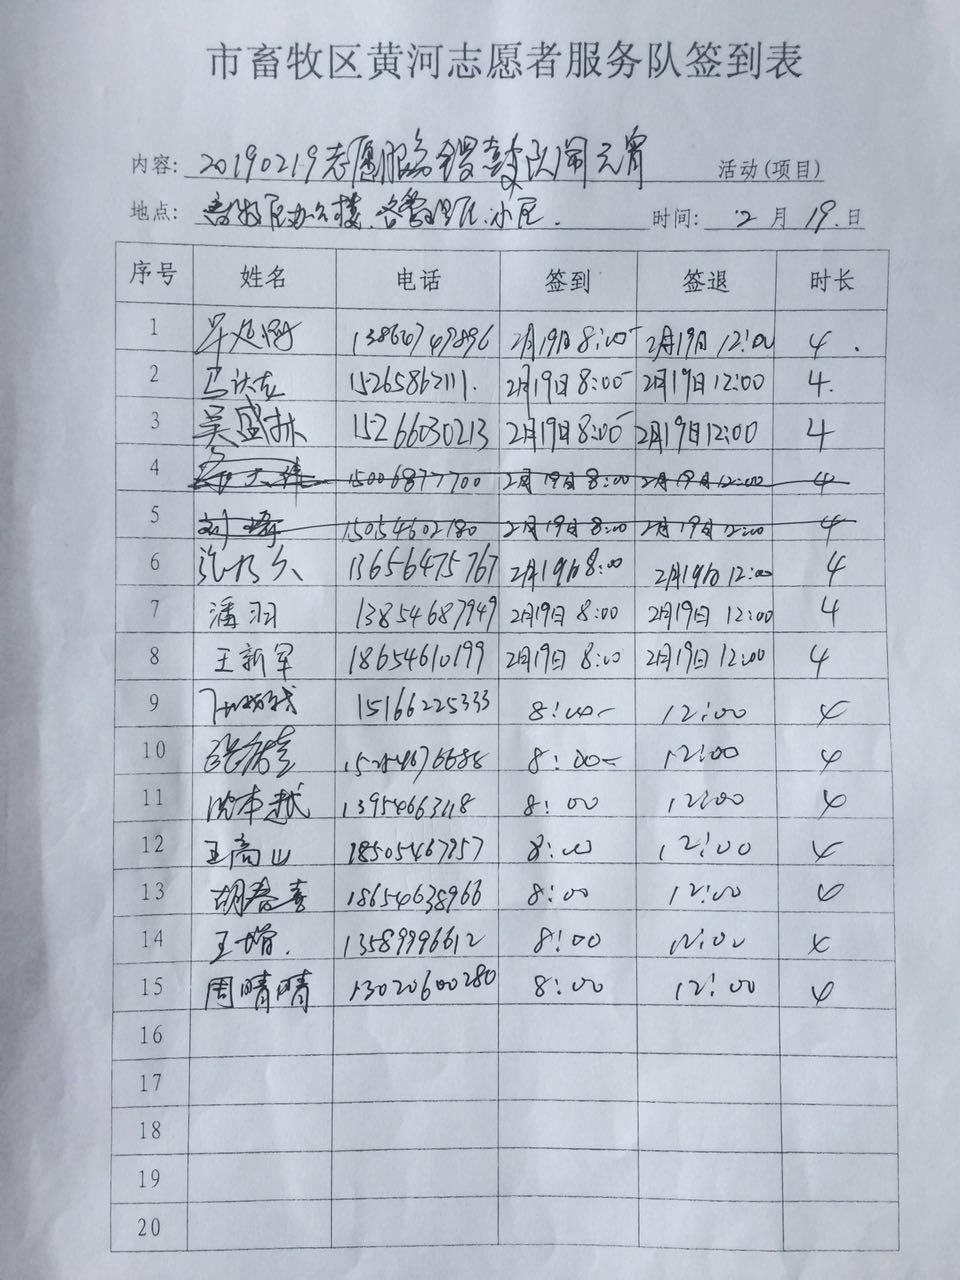 市畜牧区黄河志愿者服务队签到表
内容: 20190219志愿服务锣鼓队闹元宵 活动(项目)
地点: 畜牧区办公楼、各管理区、小区. 时间: 2月19.日
序号 姓名 电话 签到 签退 时长
1 13864749896 2月19日8:00 2月19日12:00 4.
2 15265862111. 2月19日8:00 2月19日12:00 4.
3 吴盛林 15266030213 2月19日8:00 2月19日12:00 4
4 15006877700 2月19日8:00 2月19日12:00 4
5 15054602180 2月19日8:00 2月19日12:00 4
6 13656475767 2月19日8:00 2月19日12:00 4
7 潘羽 13854687949 2月19日 8:00 2月19日 12:00 4
8 王新军 18654610199 2月19日 8:00 2月19日 12:00 4
9 15166225333 8:00 12:00 4
10 8:00 12:00 4
11 8:00 12:00 4
12 王高山 18505467957 8:00 12:00 4
13 胡春喜 18654638966 8:00 12:00 4
14 王增. 13589996612 8:00 12:00 4
15 周晴晴 13020600280 8:00 12:00 4
16
17
18
19
20